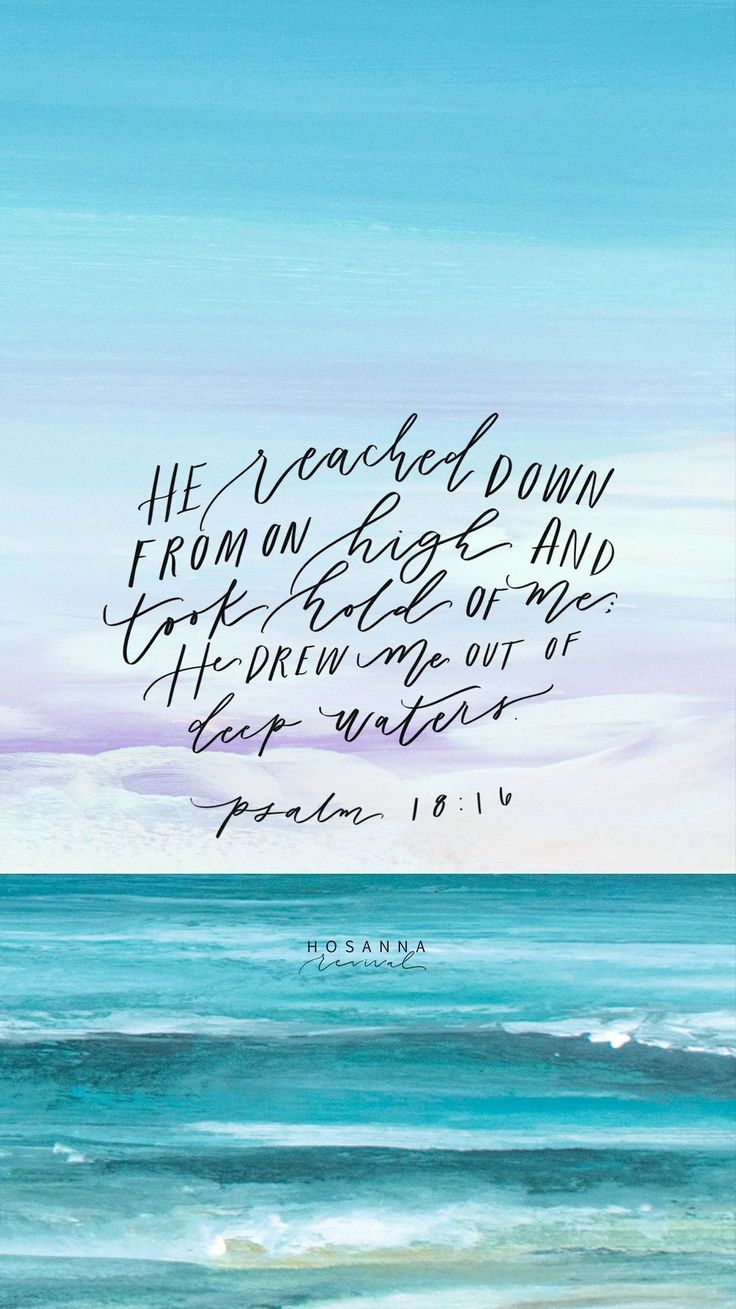 HE reached DOWN
FROM ON high AND
took hold OF me;
He DREW me OUT OF
deep waters.
psalm 18:16
HOSANNA
revival